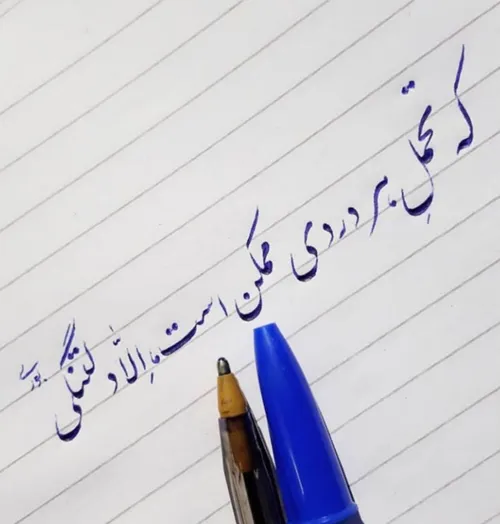 که تحملِ هر دردی ممکن است اِلّا دلتنگی